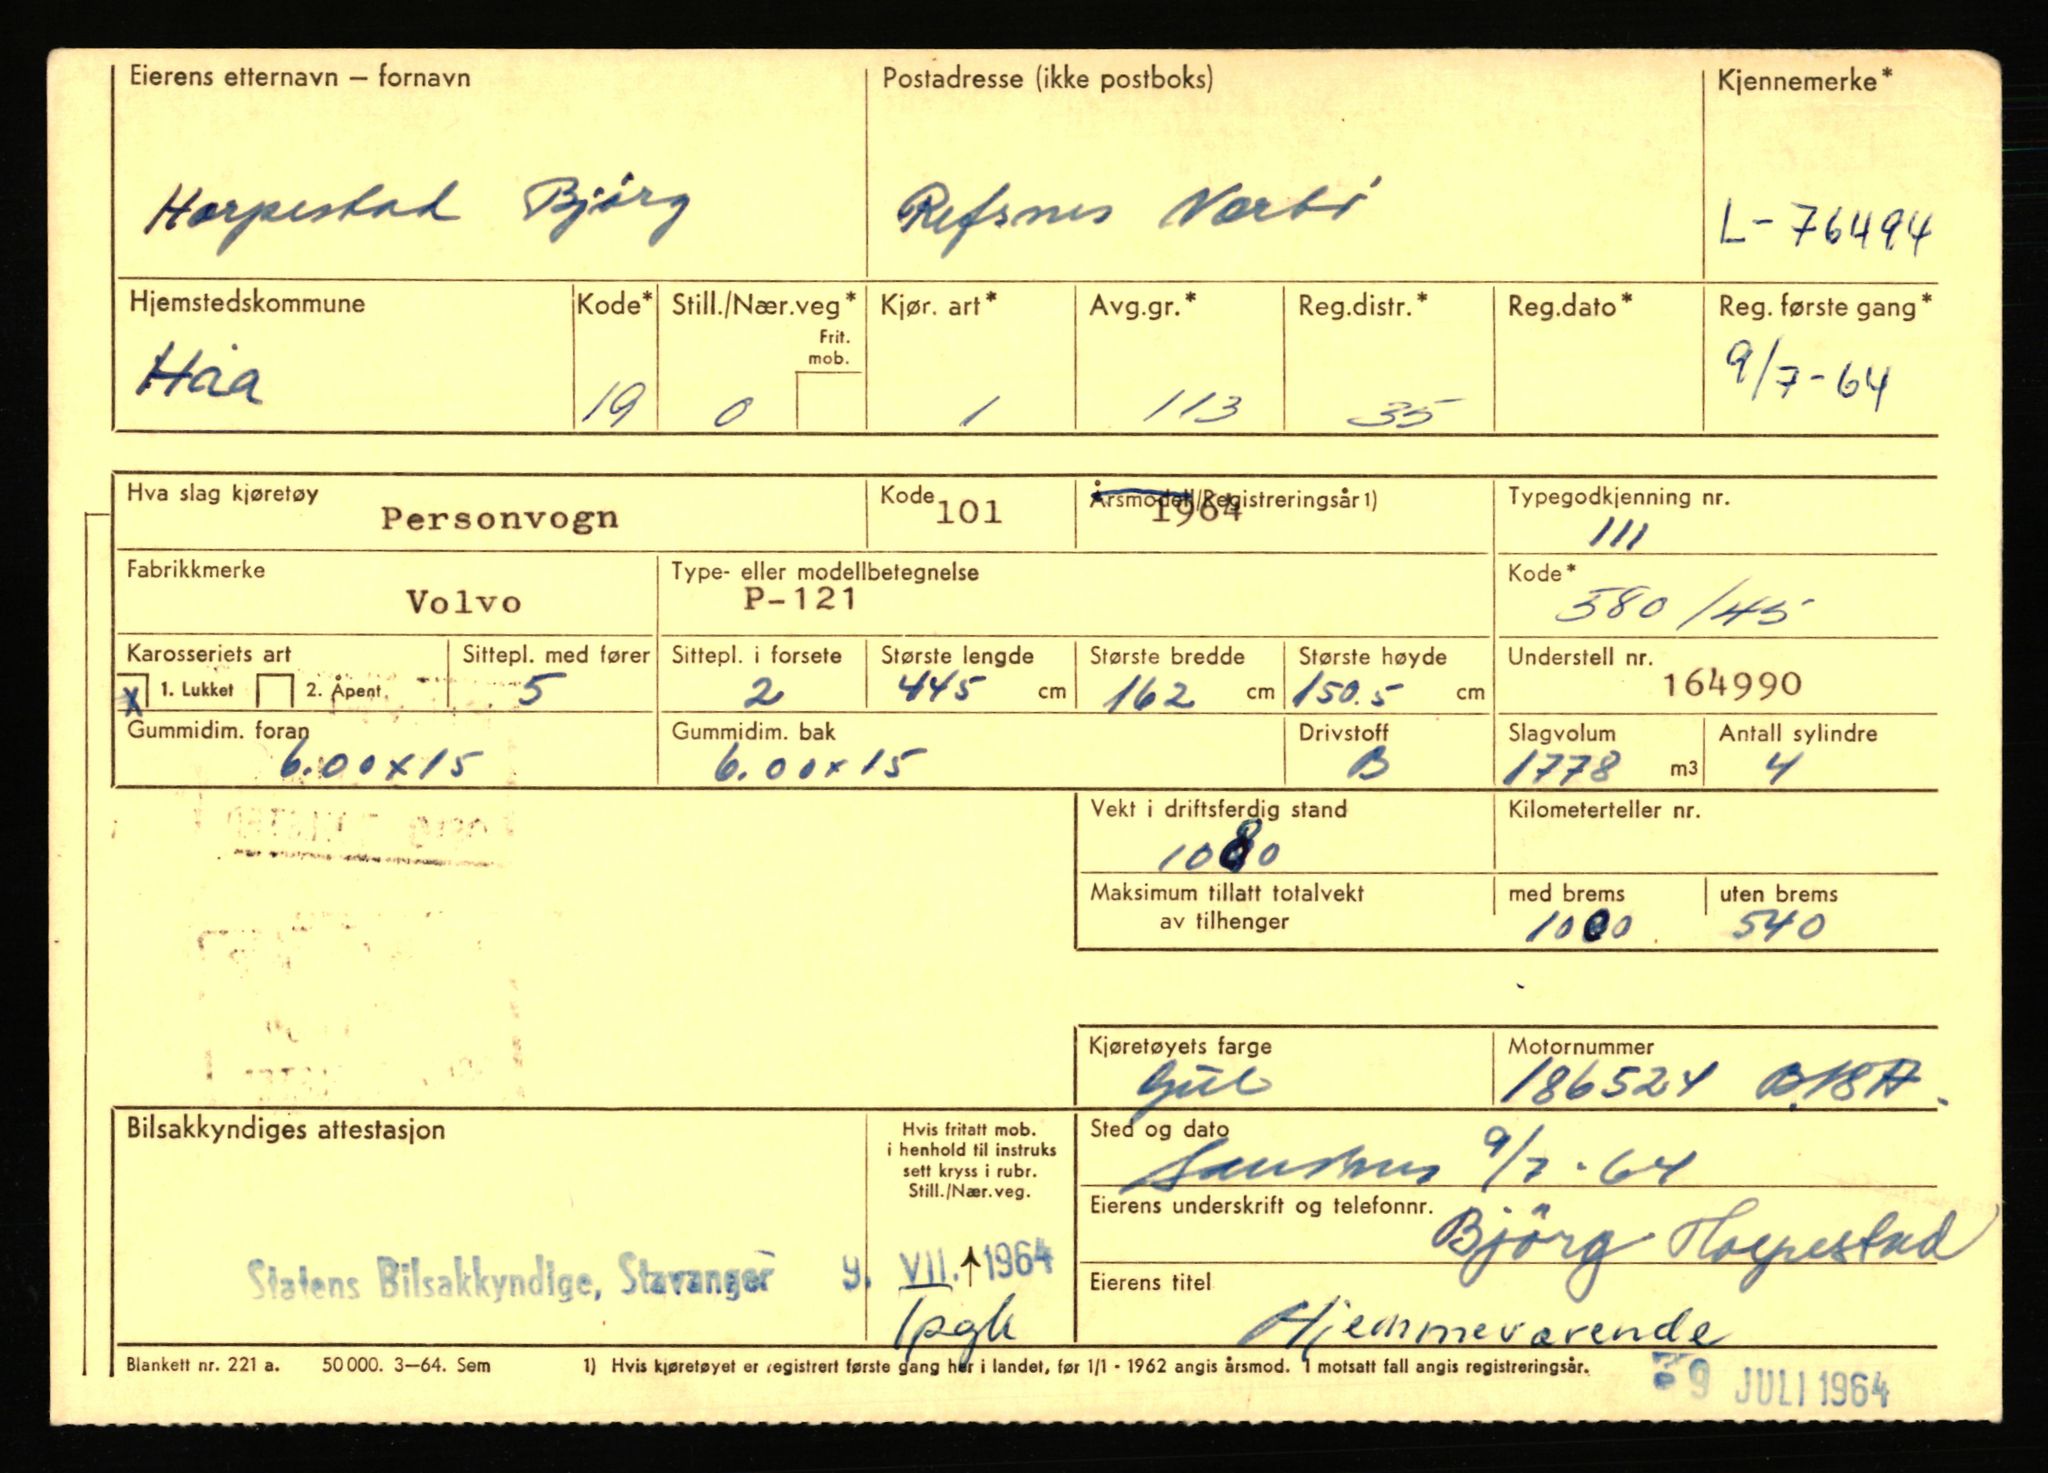 Eierens etternavn – fornavn
Harpestad Bjørg
Postadresse (ikke postboks)
Refsnes Nærbø
Kjennemerke*
L-76494
Hjemstedskommune
Håa
Kode*
19
Still./Nær.veg*
Frit.
mob.
0
Kjør. art*
1
Avg.gr.*
113
Reg.distr.*
35
Reg.dato*
Reg. første gang*
9/7-64
Hva slag kjøretøy
Personvogn
Kode
101
Årsmodell/Registreringsår 1)
1964
Typegodkjenning nr.
111
Fabrikkmerke
Volvo
Type- eller modellbetegnelse
P-121
Kode*
580/45
Karosseriets art
x 1. Lukket 2. Åpent
Sittepl. med fører
5
Sittepl. i forsete
2
Største lengde
445 cm
Største bredde
162 cm
Største høyde
150.5 cm
Understell nr.
164990
Gummidim. foran
6.00x15
Gummidim. bak
6.00x15
Drivstoff
B
Slagvolum
1778 m3
Antall sylindre
4
Vekt i driftsferdig stand
1080
Kilometerteller nr.
Maksimum tillatt totalvekt
av tilhenger
med brems
1000
uten brems
540
Kjøretøyets farge
Gul
Motornummer
186524 B18A.
Bilsakkyndiges attestasjon
Statens Bilsakkyndige, Stavanger 9. VII. 1964
Hvis fritatt mob.
i henhold til instruks
sett kryss i rubr.
Still./Nær.veg.
↑
Sted og dato
9/7-64
Eierens underskrift og telefonnr.
Bjørg Harpestad
Eierens titel
Hjemmeværende
Blankett nr. 221 a. 50 000. 3–64. Sem
1) Hvis kjøretøyet er registrert første gang her i landet, før 1/1 - 1962 angis årsmod. I motsatt fall angis registreringsår.
9 JULI 1964